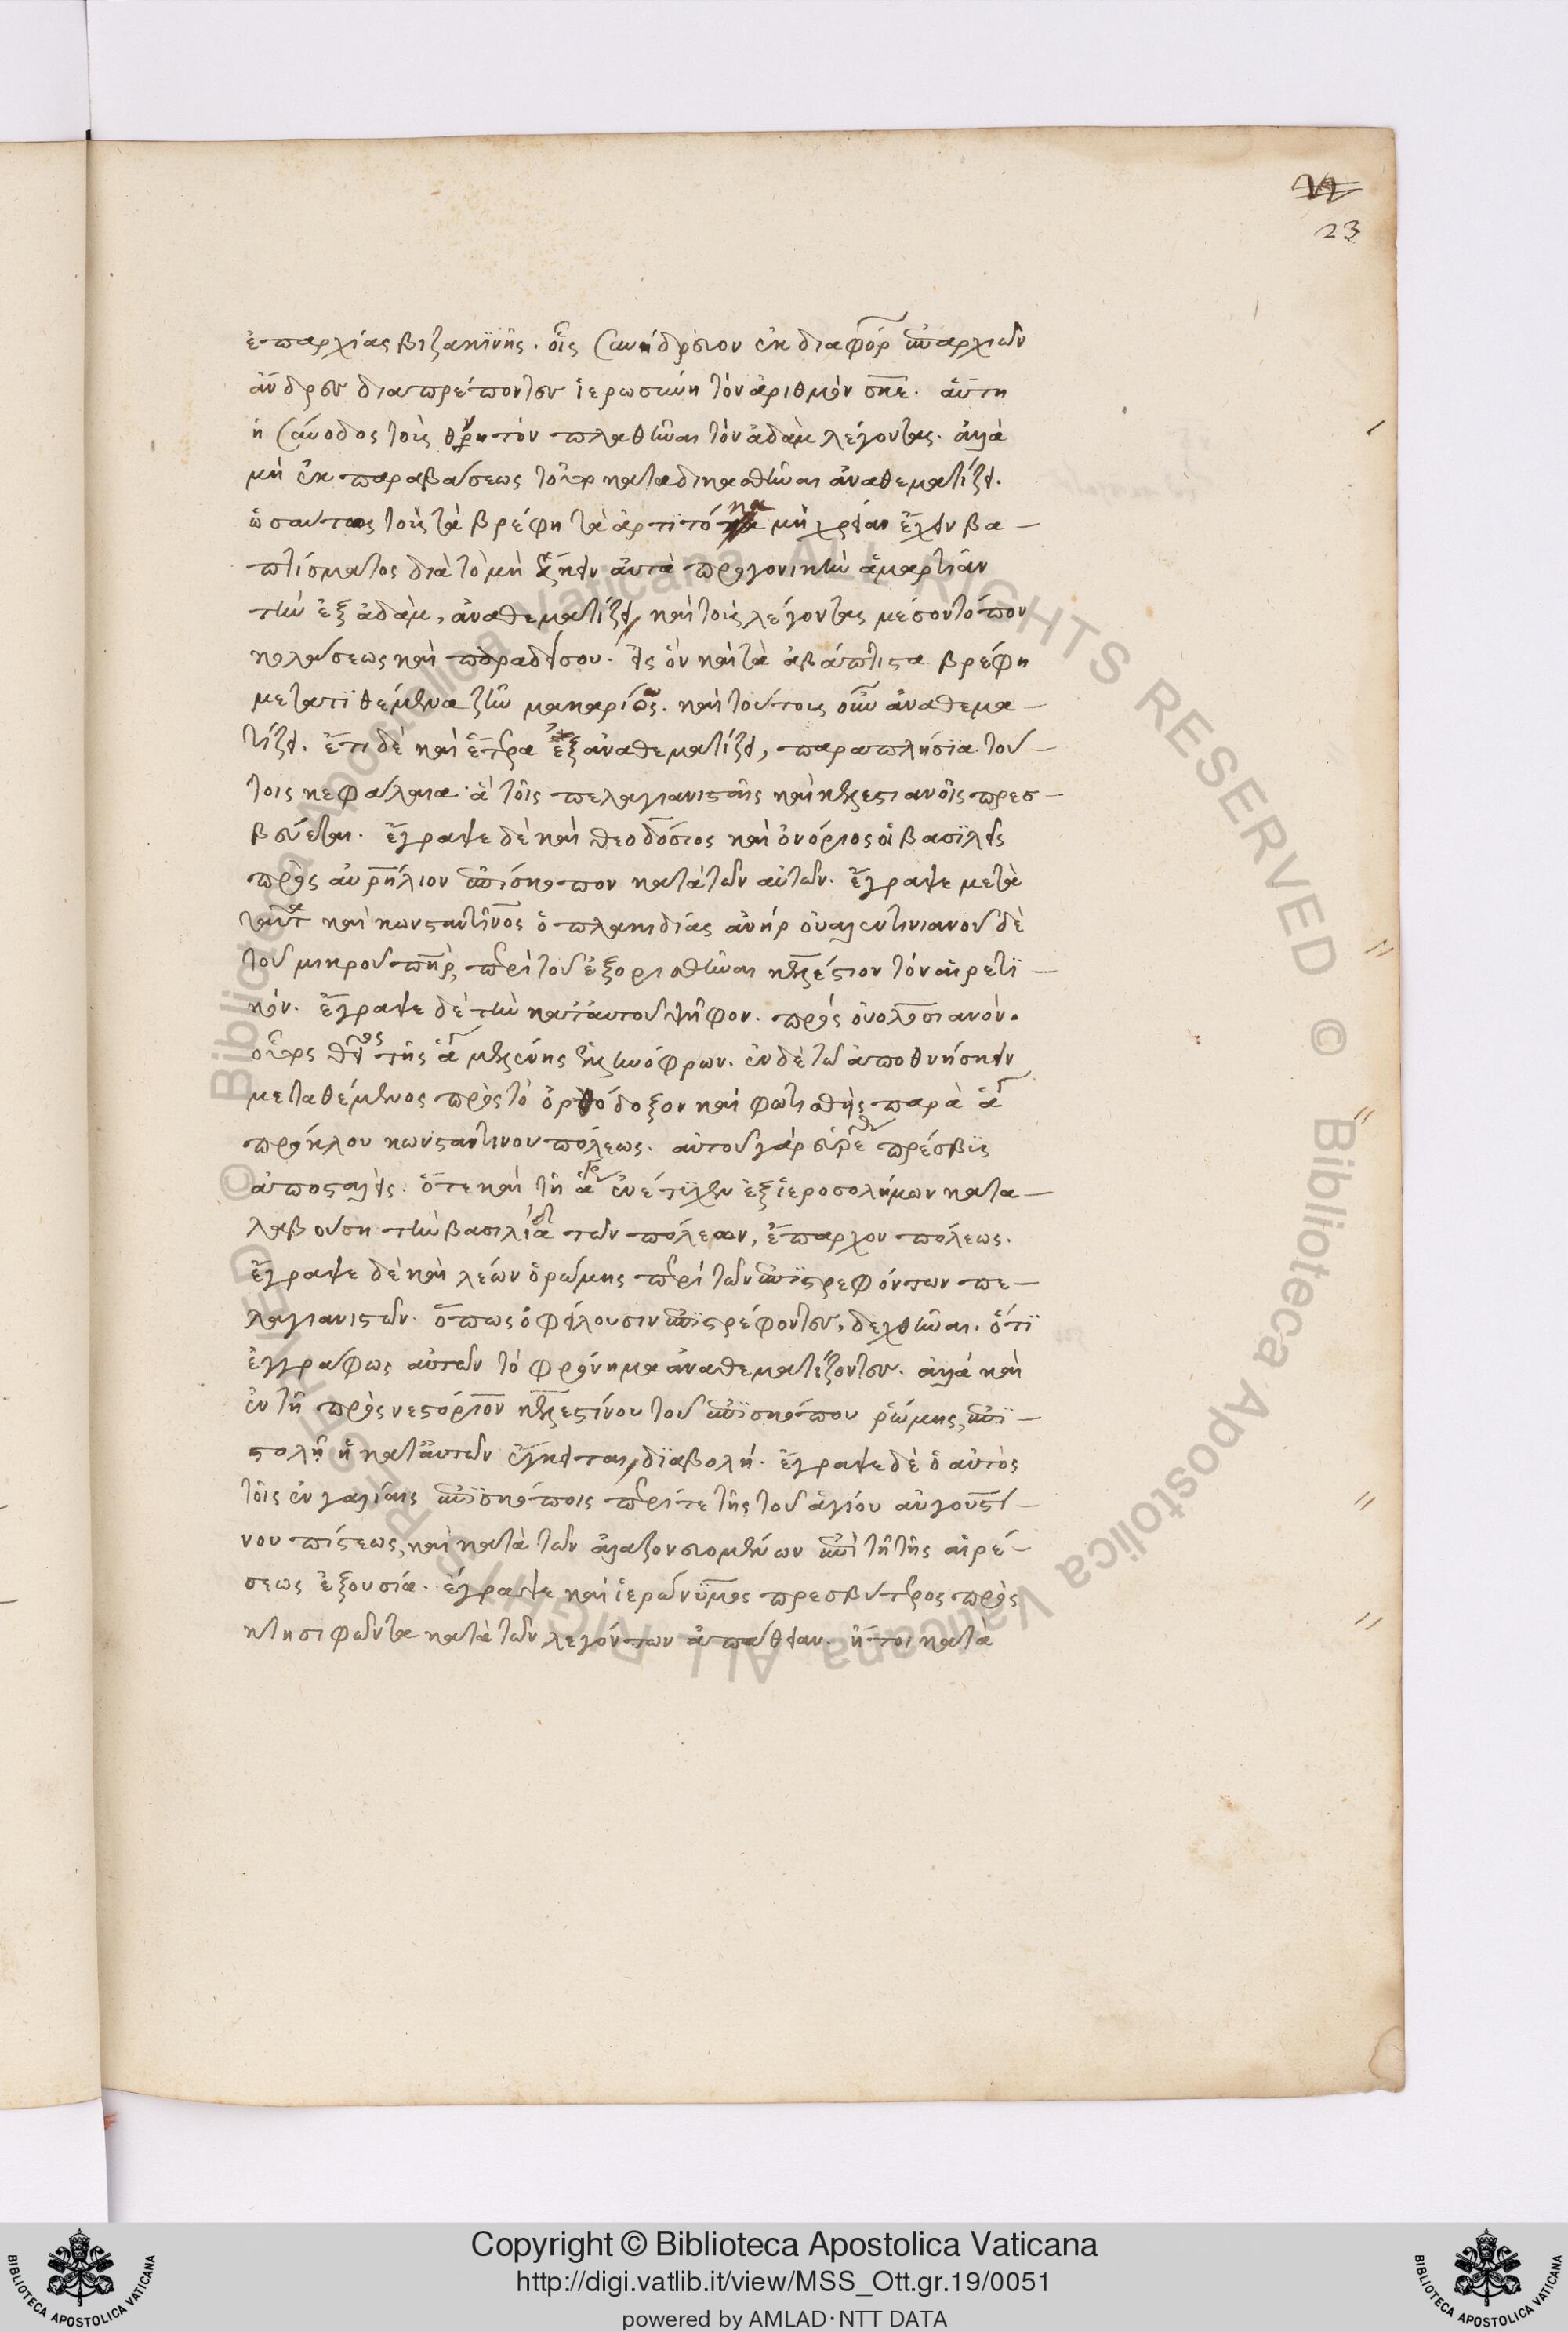 23
ἐπαρχίας βιζακϊνῆς. οἷς συνήδρευον ἐκ διαφόρ ἐπαρχιῶν
ἀνδρῶν διαπρεπόντων ἱερωσύνη τὸν ἀριθμὸν σκε. αὕτη
ἡ σύνοδος τοὺς θνητὸν πλασθῆναι τὸν ἀδὰμ λέγοντας. ἀλλὰ
μὴ ἐκ παραβάσεως τοῦτο καταδικασθῆναι ἀναθεματίζει.
ὡσαύτως τοὺς τὰ βρέφη τὰ ἀρτιτόκα μὴ χρείαν ἔχειν βα-
πτίσματος διὰ τὸ μὴ ἕλκειν αὐτὰ προγονικὴν ἁμαρτίαν
τὴν ἐξ ἀδὰμ, ἀναθεματίζει, καὶ τοὺς λέγοντας μέσον τόπον
κολάσεως καὶ παραδείσου. εἰς ὃν καὶ τὰ ἀβάπτιστα βρέφη
μετατϊθέμενα ζῆν μακαρίως. καὶ τούτους οὖν ἀναθεμα-
τίζει. ἔτι δὲ καὶ ἕτερα ἓξ ἀναθεματίζει, παραπλήσϊα τού-
τοις κεφάλαια ἃ τοῖς πελαγιανισταῖς καὶ κελεστιανοῖς πρεσ-
βεύεται. ἔγραψε δὲ καὶ θεοδόσιος καὶ ὁνόριος οἱ βασϊλεῖς
πρὸς αὐρήλιον ἐπίσκοπον κατὰ τῶν αὐτῶν. ἔγραψε μετὰ
ταῦτα καὶ κωνσταντῖνος ὁ πλακιδίας ἀνήρ οὐαλεντινιανοῦ δὲ
τοῦ μικροῦ πηρ, περὶ τοῦ ἐξορισθῆναι κελέστιον τὸν αἱρετϊ-
κόν. ἔγραψε δὲ τὴν κατ' αὐτοῦ ψῆφον. πρὸς οὐολοσιανόν.
μεταθέμενος πρὸς τὸ ὀρθόδοξον καὶ φωτισθεὶς παρὰ
πρόκλου κωνσταντινουπόλεως. αὐτοῦ γὰρ πρέσβυς
ἀποσταλεὶς. ὅτε καὶ τῆ ἐνέτυχεν ἐξ ἱεροσολήμων κατα-
λαβούση τὴν βασιλίδα τῶν πόλεων, ἔπαρχον πόλεως.
ἔγραψε δὲ καὶ λέων ὁ ῥώμης περὶ τῶν ἐπϊστρεφόντων πε-
λαγιανιστῶν. ὅπως ὀφείλουσιν ἐπϊστρέφοντες, δεχθῆναι. ὅτϊ
ἐγγράφως αὐτῶν τὸ φρόνημα ἀναθεματίζοντες. ἀλλὰ καὶ
ἐν τῆ πρὸς νεστόριον κελεστίνου τοῦ ἐπϊσκόπου ῥώμης, ἐπϊ-
στολῆ ἡ κατ' αὐτῶν ἔγκειται, δϊαβολή. ἔγραψε δὲ ὁ αὐτὸς
τοῖς ἐν γαλίαις ἐπϊσκόποις περί τε τῆς τοῦ ἁγίου αὐγουστί-
νου πίστεως, καὶ κατὰ τῶν ἀλαζονευομένων ἐπὶ τῆ τῆς αἱρέ-
σεως ἐξουσία. ἔγραψε καὶ ἱερώνϋμος πρεσβύτερος πρὸς
κτησιφῶντα κατὰ τῶν λεγόντων ἀπάθειαν. ἤτοι κατὰ
Copyright © Biblioteca Apostolica Vaticana
http://digi.vatlib.it/view/MSS_Ott.gr.19/0051
powered by AMLAD·NTT DATA
BIBLIOTECA APOSTOLICA VATICANA
BIBLIOTECA APOSTOLICA VATICANA
© Biblioteca Apostolica Vaticana ALL RIGHTS RESERVED
© Biblioteca Apostolica Vaticana ALL RIGHTS RESERVED